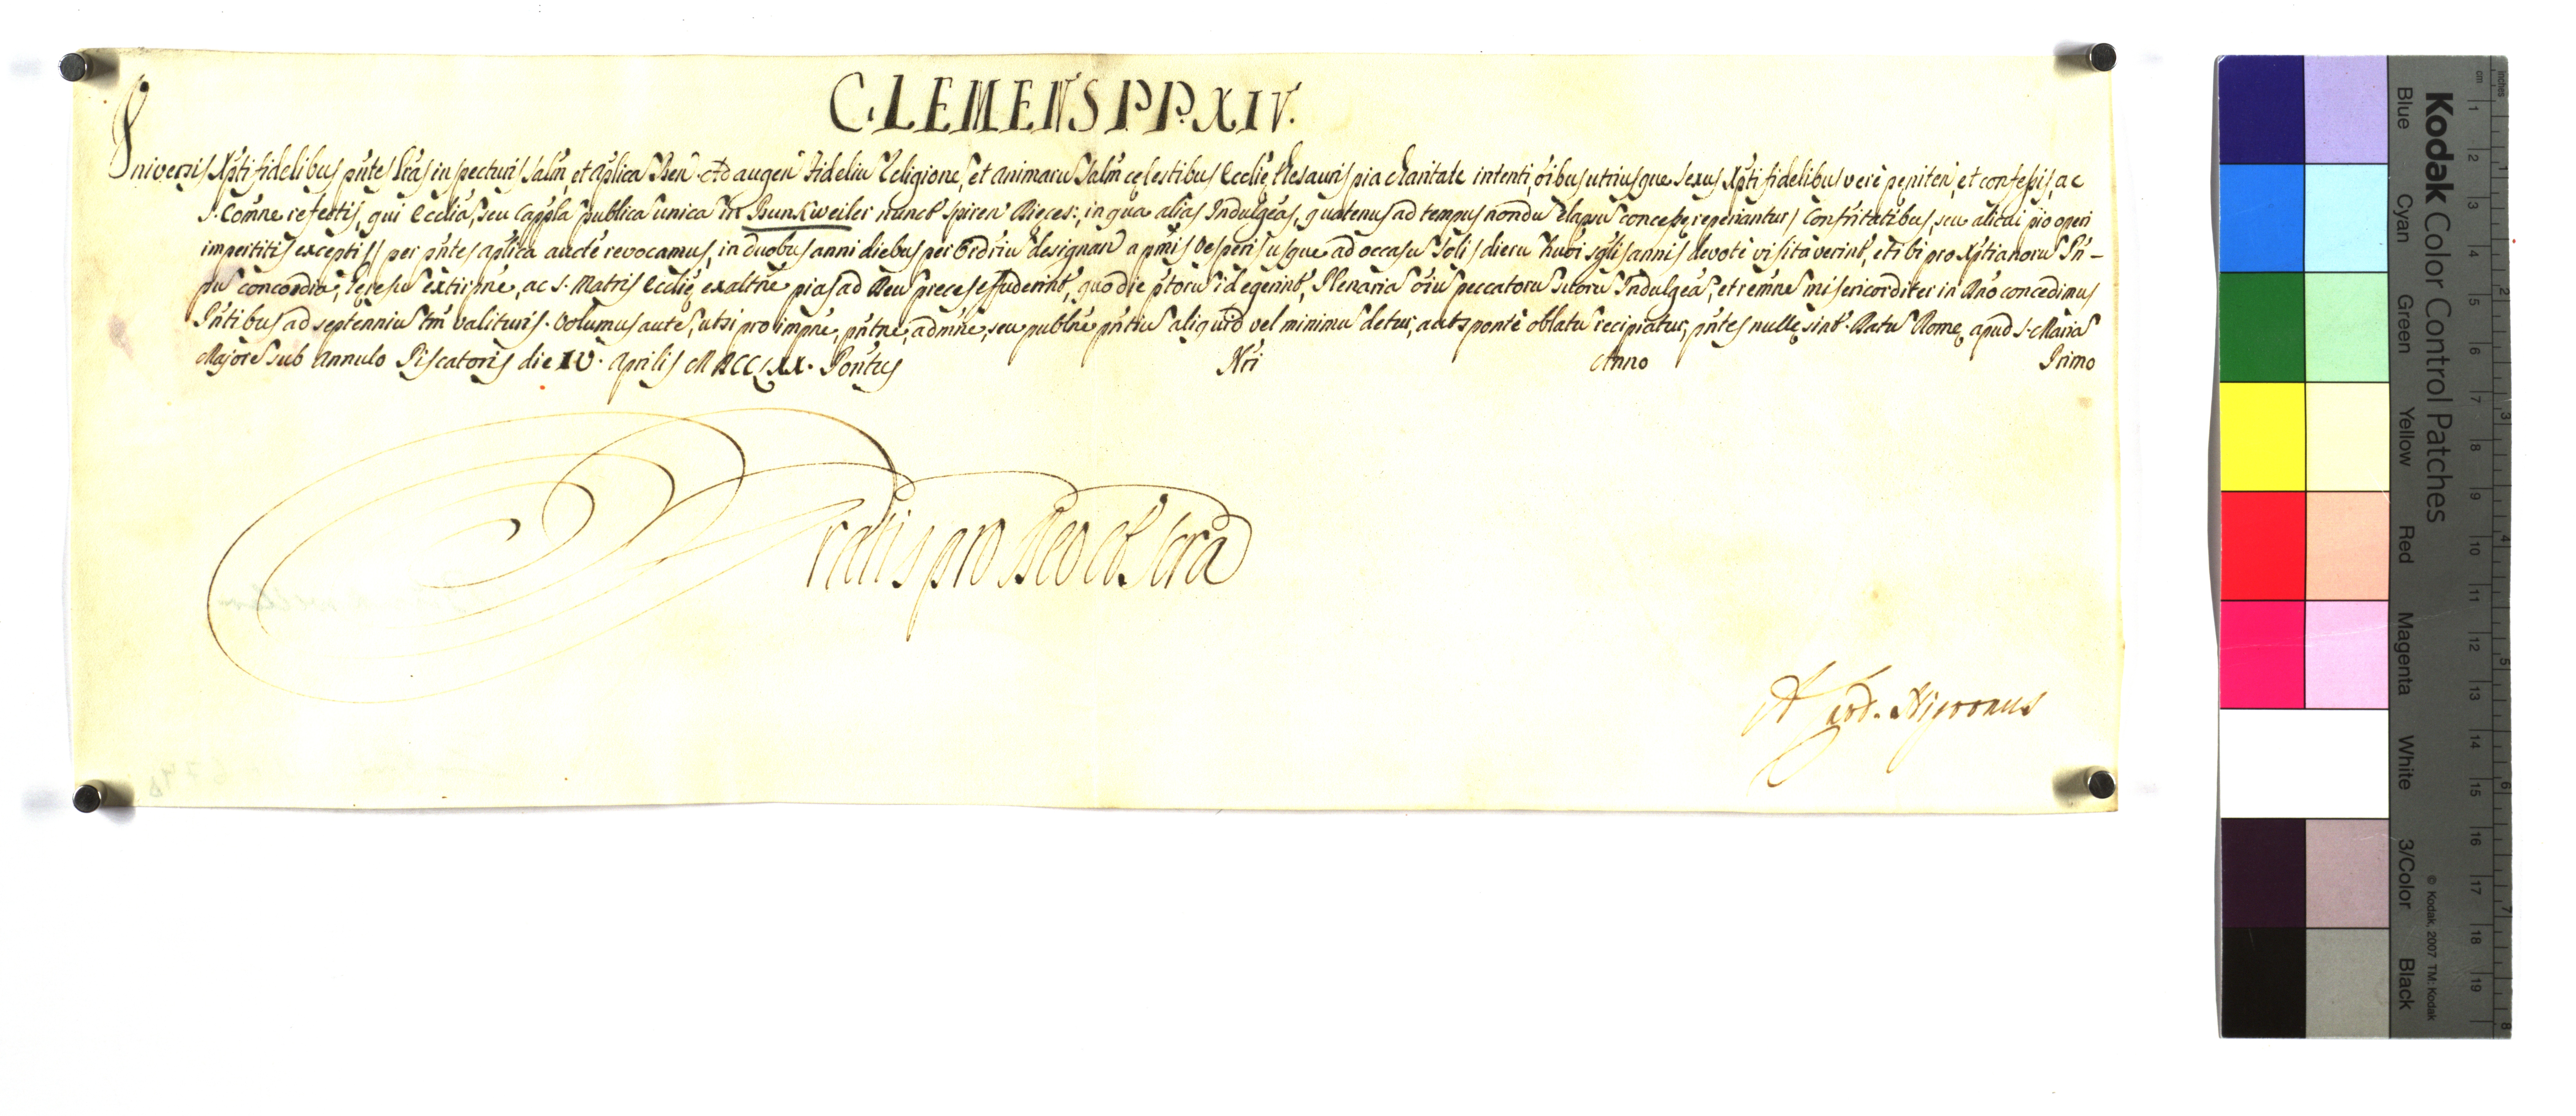 CLEMENS PP. XIV.
Universis Xpti fidelibus pñtes lrãs inspecturis salm̃, et aplicã Ben. Ad augen Fideliu Religione, et animaru Salm̃ cęlestibus Ecclię thesauris pia charitate intenti, oibus utriusque sexus Xpti fidelibus verè penitenˉ, et confessis, ac
S. Com̃ne refectis, qui Ecclia, seu Cappla publica unica in Bunkweiler nunct Spiren Dieces:, in qua alias Indulgeãs, quatenus ad tempus nondu elapsu concesse reperiantur, Confritatibus, seu alicui pio operi
impertitis exceptis per pñtes aplica aucte revocamus, in duobus anni diebus per Ordriu designan a pm̃is Vesperis usque ad occasu Solis dieru huõi sglis annis devotè visitaverint, et ibi pro Xptianoru Pñ-
pu concordia, heresu extirpñe, ac S. Matris Ecclię exaltñe pias ad Deu preces effuderint, quo die ptoru id egerint, Plenaria oiu peccatoru suoru Indulgeã, et rem̃ne misericorditer in Dño concedimus
Pñtibus ad septenniu tm̃ valituris. Volumus aute, ut si pro impñe, pñtñe, admñe, seu publñe pñtiu aliquid vel minimu detur, aut sponte oblatu recipiatur, pñtes nullę sint. Datu Romę, apud S. Maria
Majore sub Annulo Piscatoris die IV. Aprilis MDCCLXX. Pontus Nri Anno Primo
Gratis pro Deo et scra
A Card. Nigronus